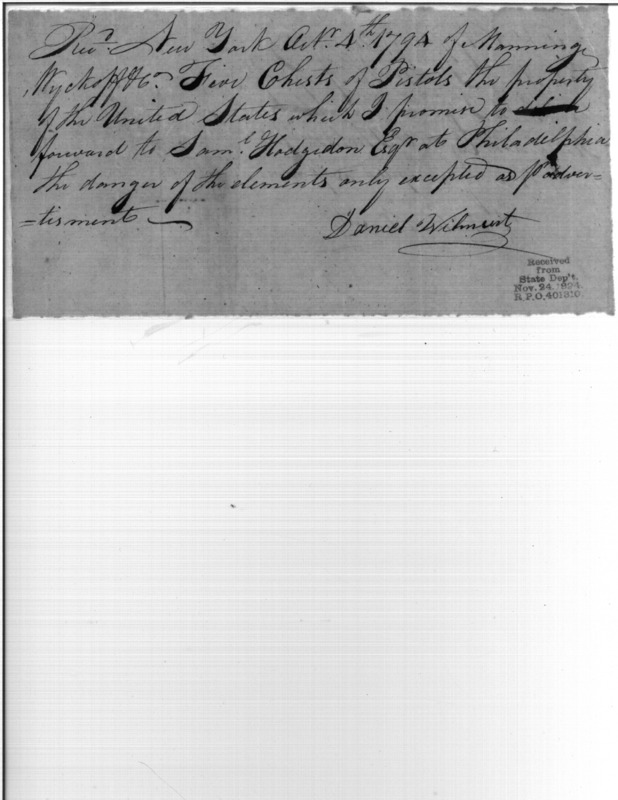 Rec.d New York Oct.r 4.th 1794 of Manning
Wyckoff & Co. Five Chests of Pistols the property
of the United States which I promise to
forward to Sam.l Hodgedon Esq.r at Philadelphia
the danger of the elements only excepted as pr adver=
=tisment
Daniel Wilmurt
Received
from
State Dep't.
Nov. 24, 1894.
R.P.O.